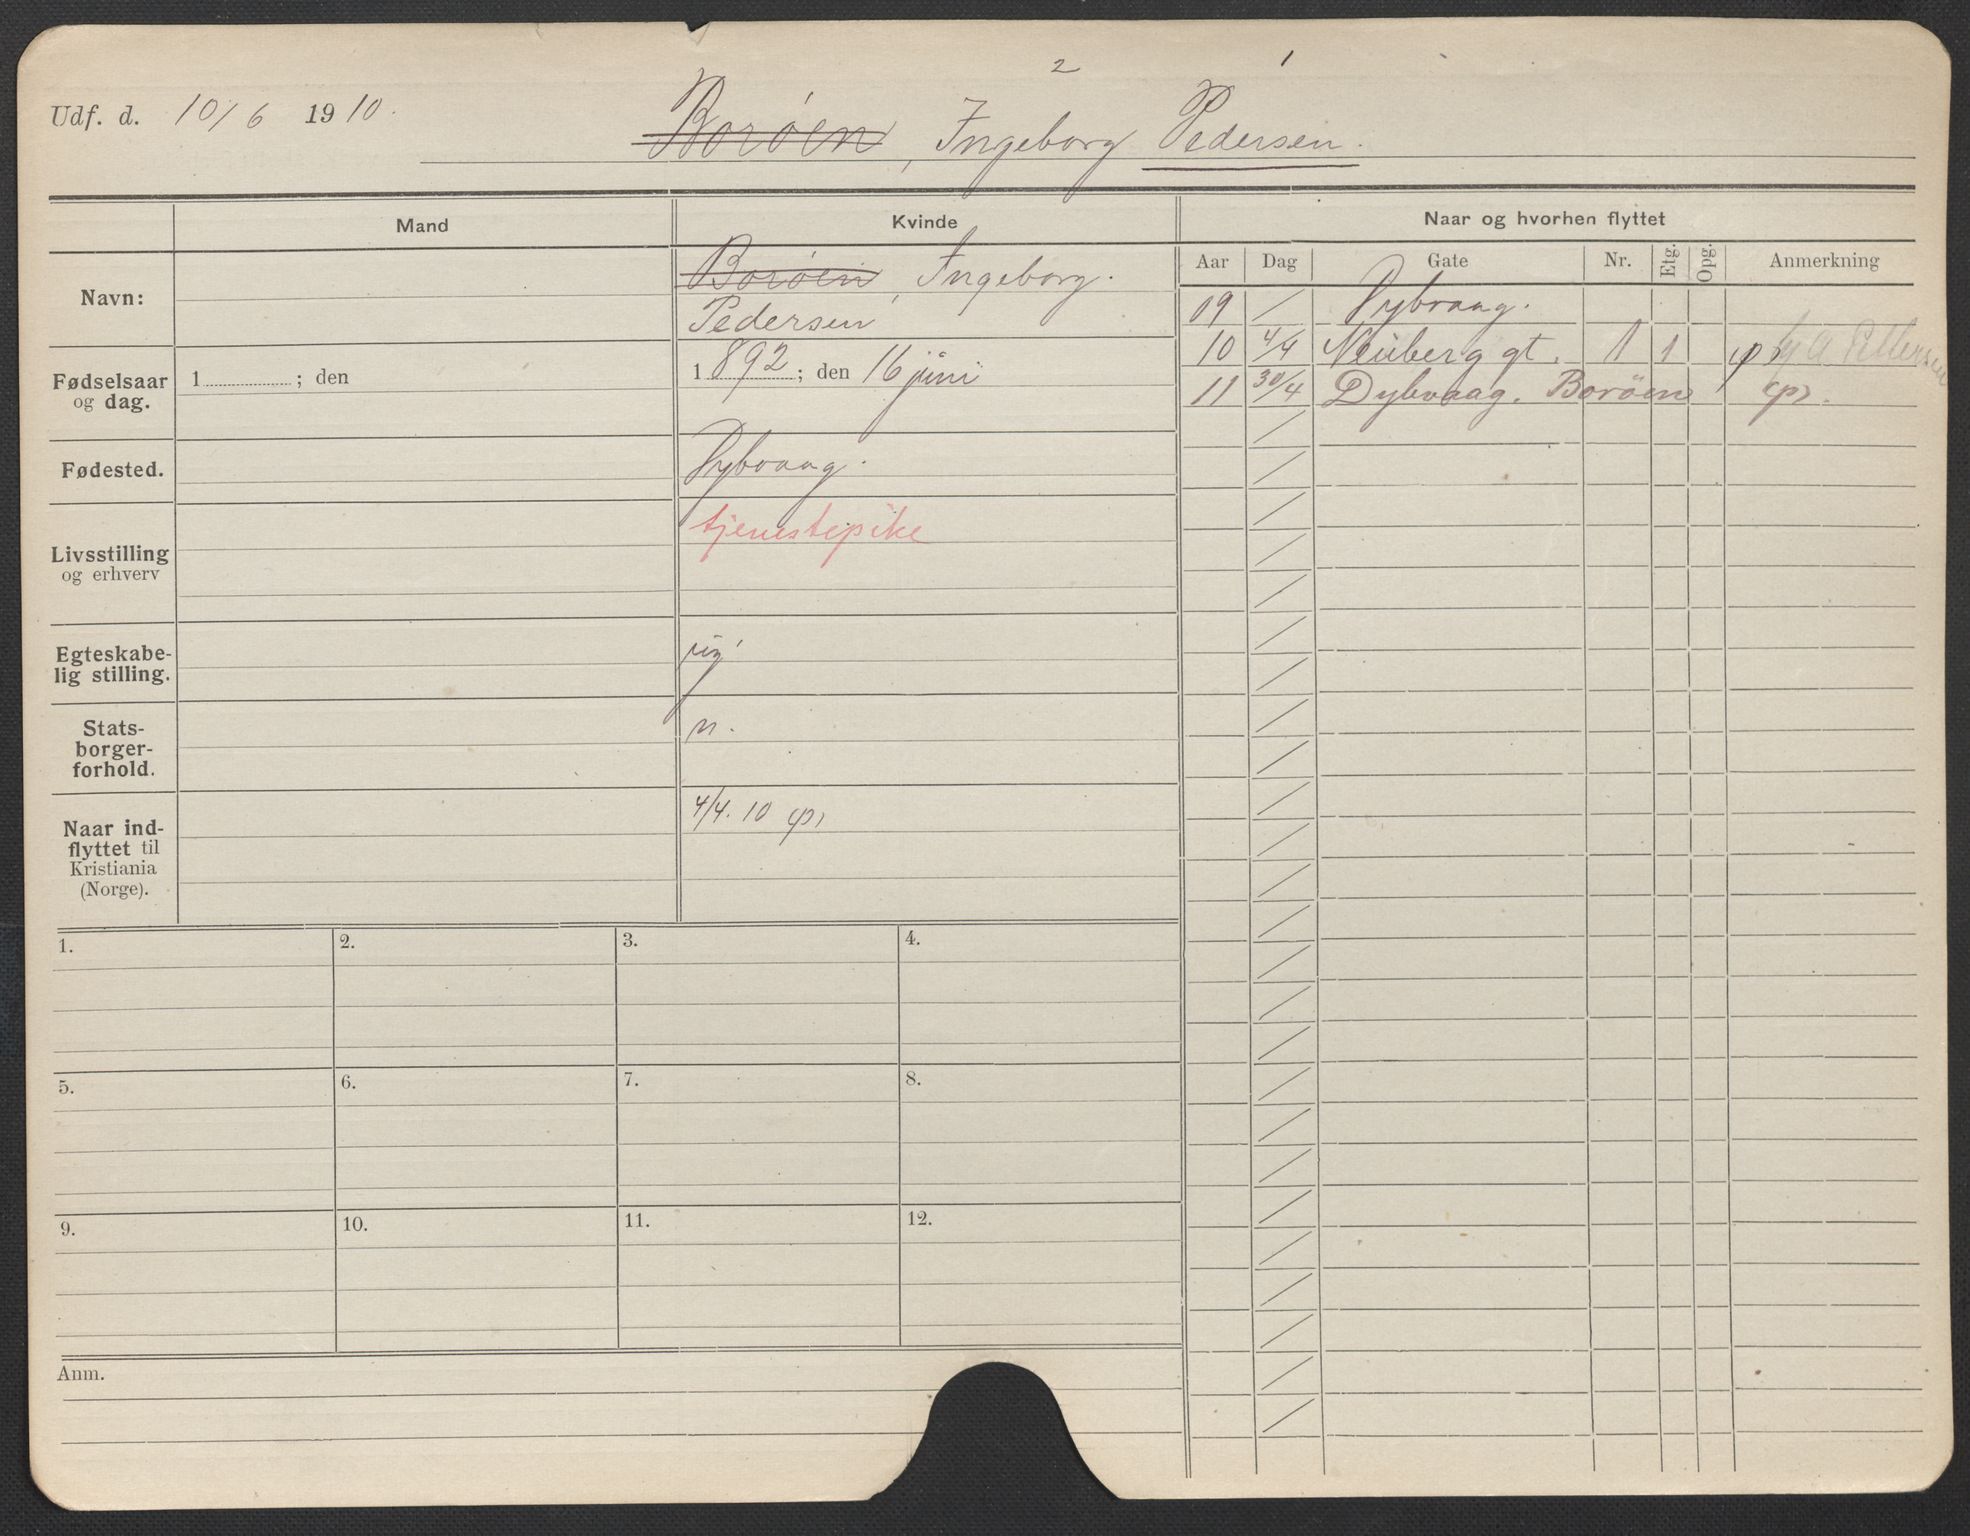 2 1
Udf. d. 10/6 1910. Borøen, Ingeborg Pedersen.
Mand Kvinde Naar og hvorhen flyttet
Aar Dag Gate Nr. Etg. Opg. Anmerkning
Navn: Borøen, Ingeborg.
Pedersen
Fødselsaar og dag. 1 ; den 1892; den 16 juni
Fødested. Dybvaag.
Livsstilling og erhverv tjenestepike
Egteskabe-
lig stilling. ug
Stats-
borger-
forhold. n.
Naar ind-
flyttet til
Kristiania
(Norge). 4/4. 10
09 / Dybvaag.
10 4/4 Neuberg gt. 1 1
11 30/4 Dybvaag. Borøen
1. 2. 3. 4.
5. 6. 7. 8.
9. 10. 11. 12.
Anm.